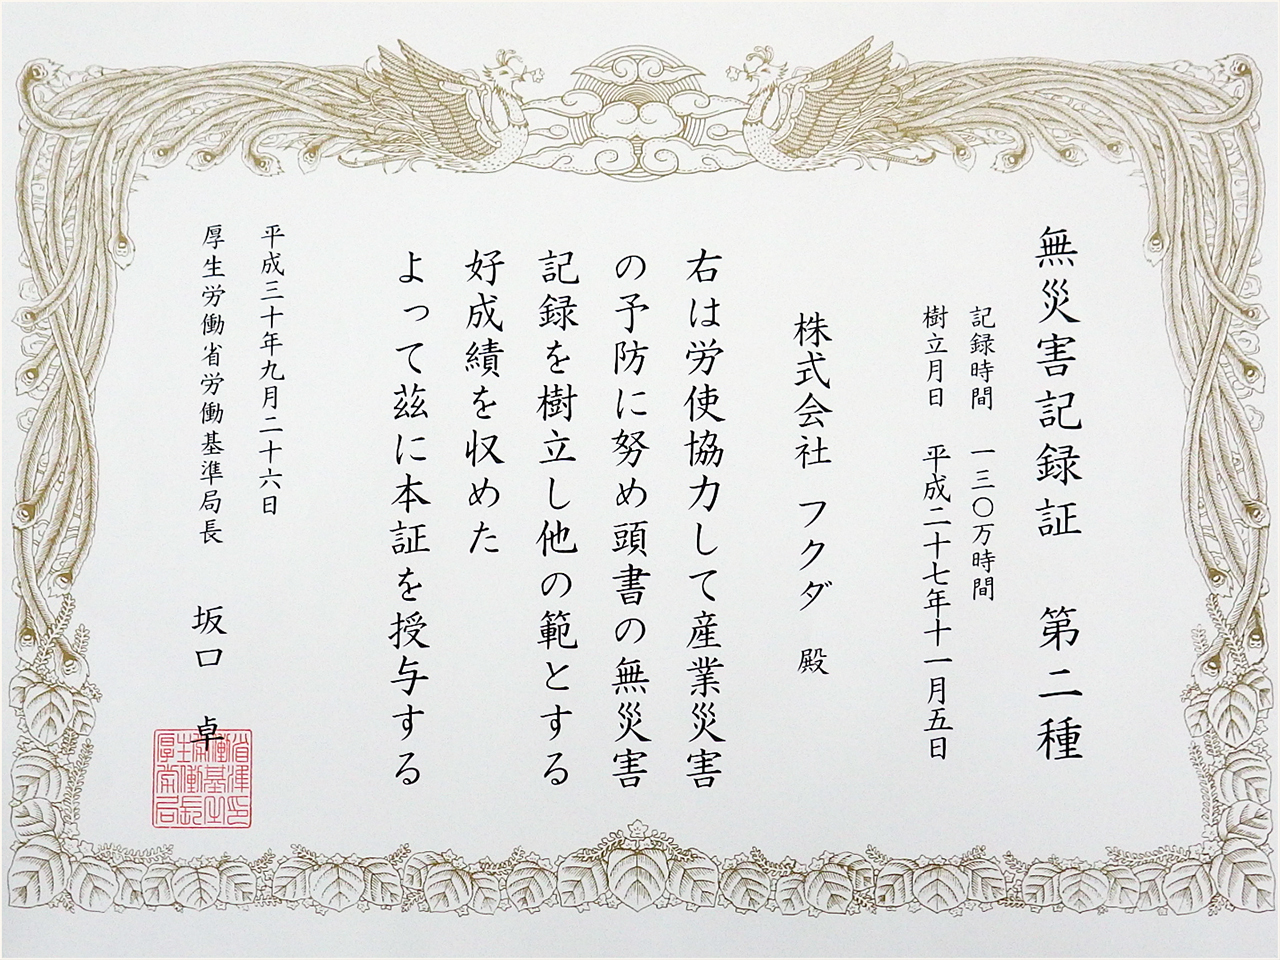 無災害記録証 第二種
記録時間 一三〇万時間
樹立月日 平成二十七年十一月五日
株式会社 フクダ 殿
右は労使協力して産業災害
の予防に努め頭書の無災害
記録を樹立し他の範とする
好成績を収めた
よって茲に本証を授与する
平成三十年九月二十六日
厚生労働省労働基準局長 坂口 卓